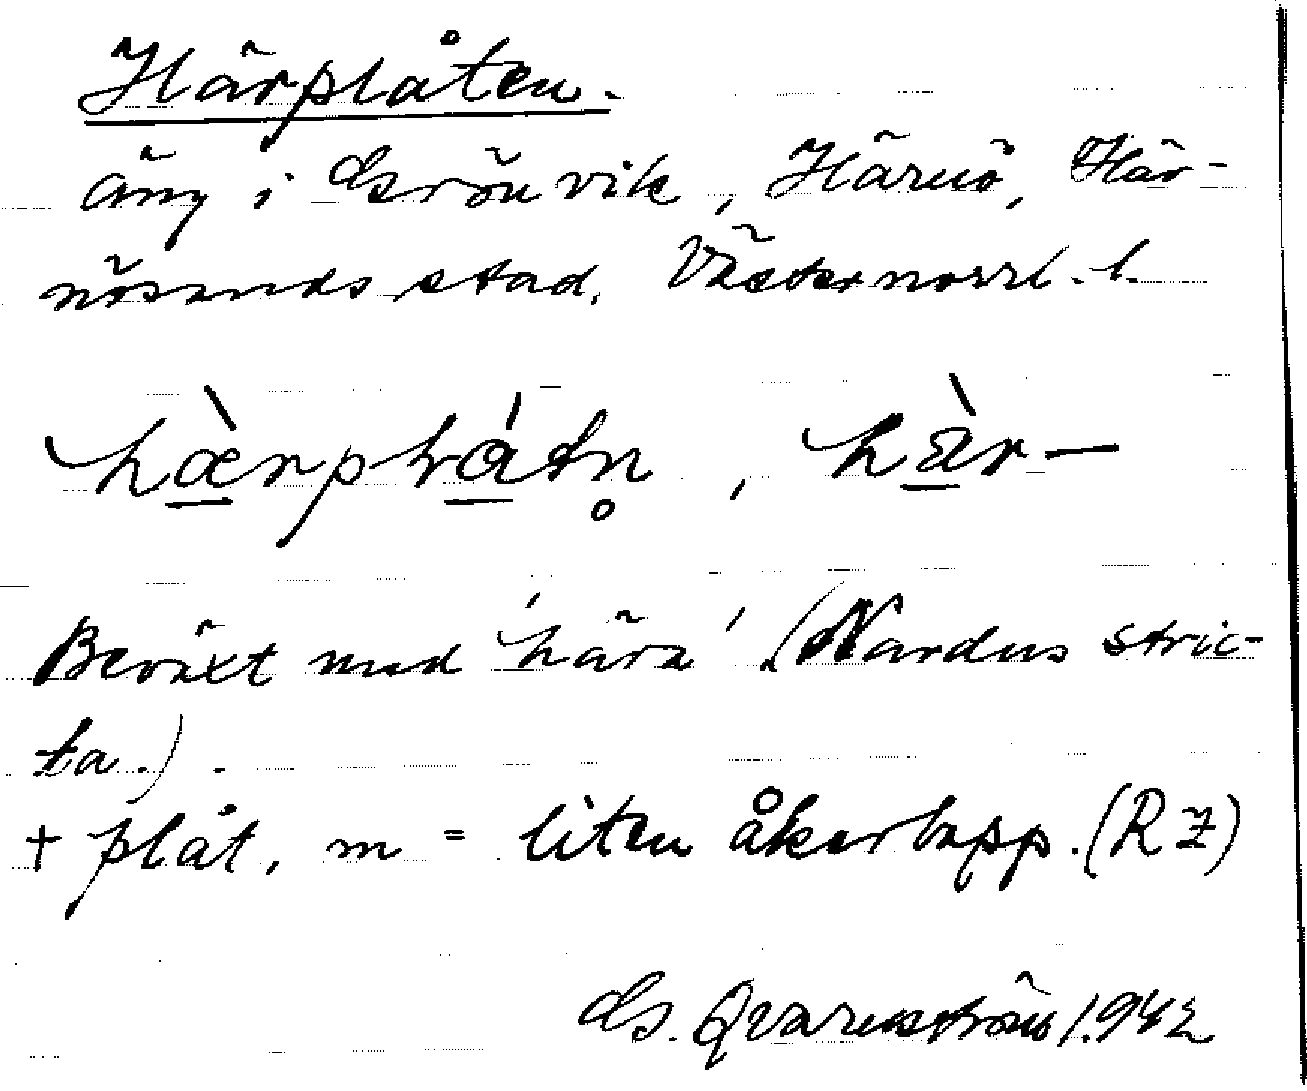 Härplåten.
äng i Grönvik, Härnö, Här-
nösands stad, Västernorrl. l.
hæ̀rplátn̥, hær-
Beväxt med 'hära' (Nardus stric-
ta.).
+ plåt, m = liten åkerlapp. (R Z)
G. Qvarnström 1942